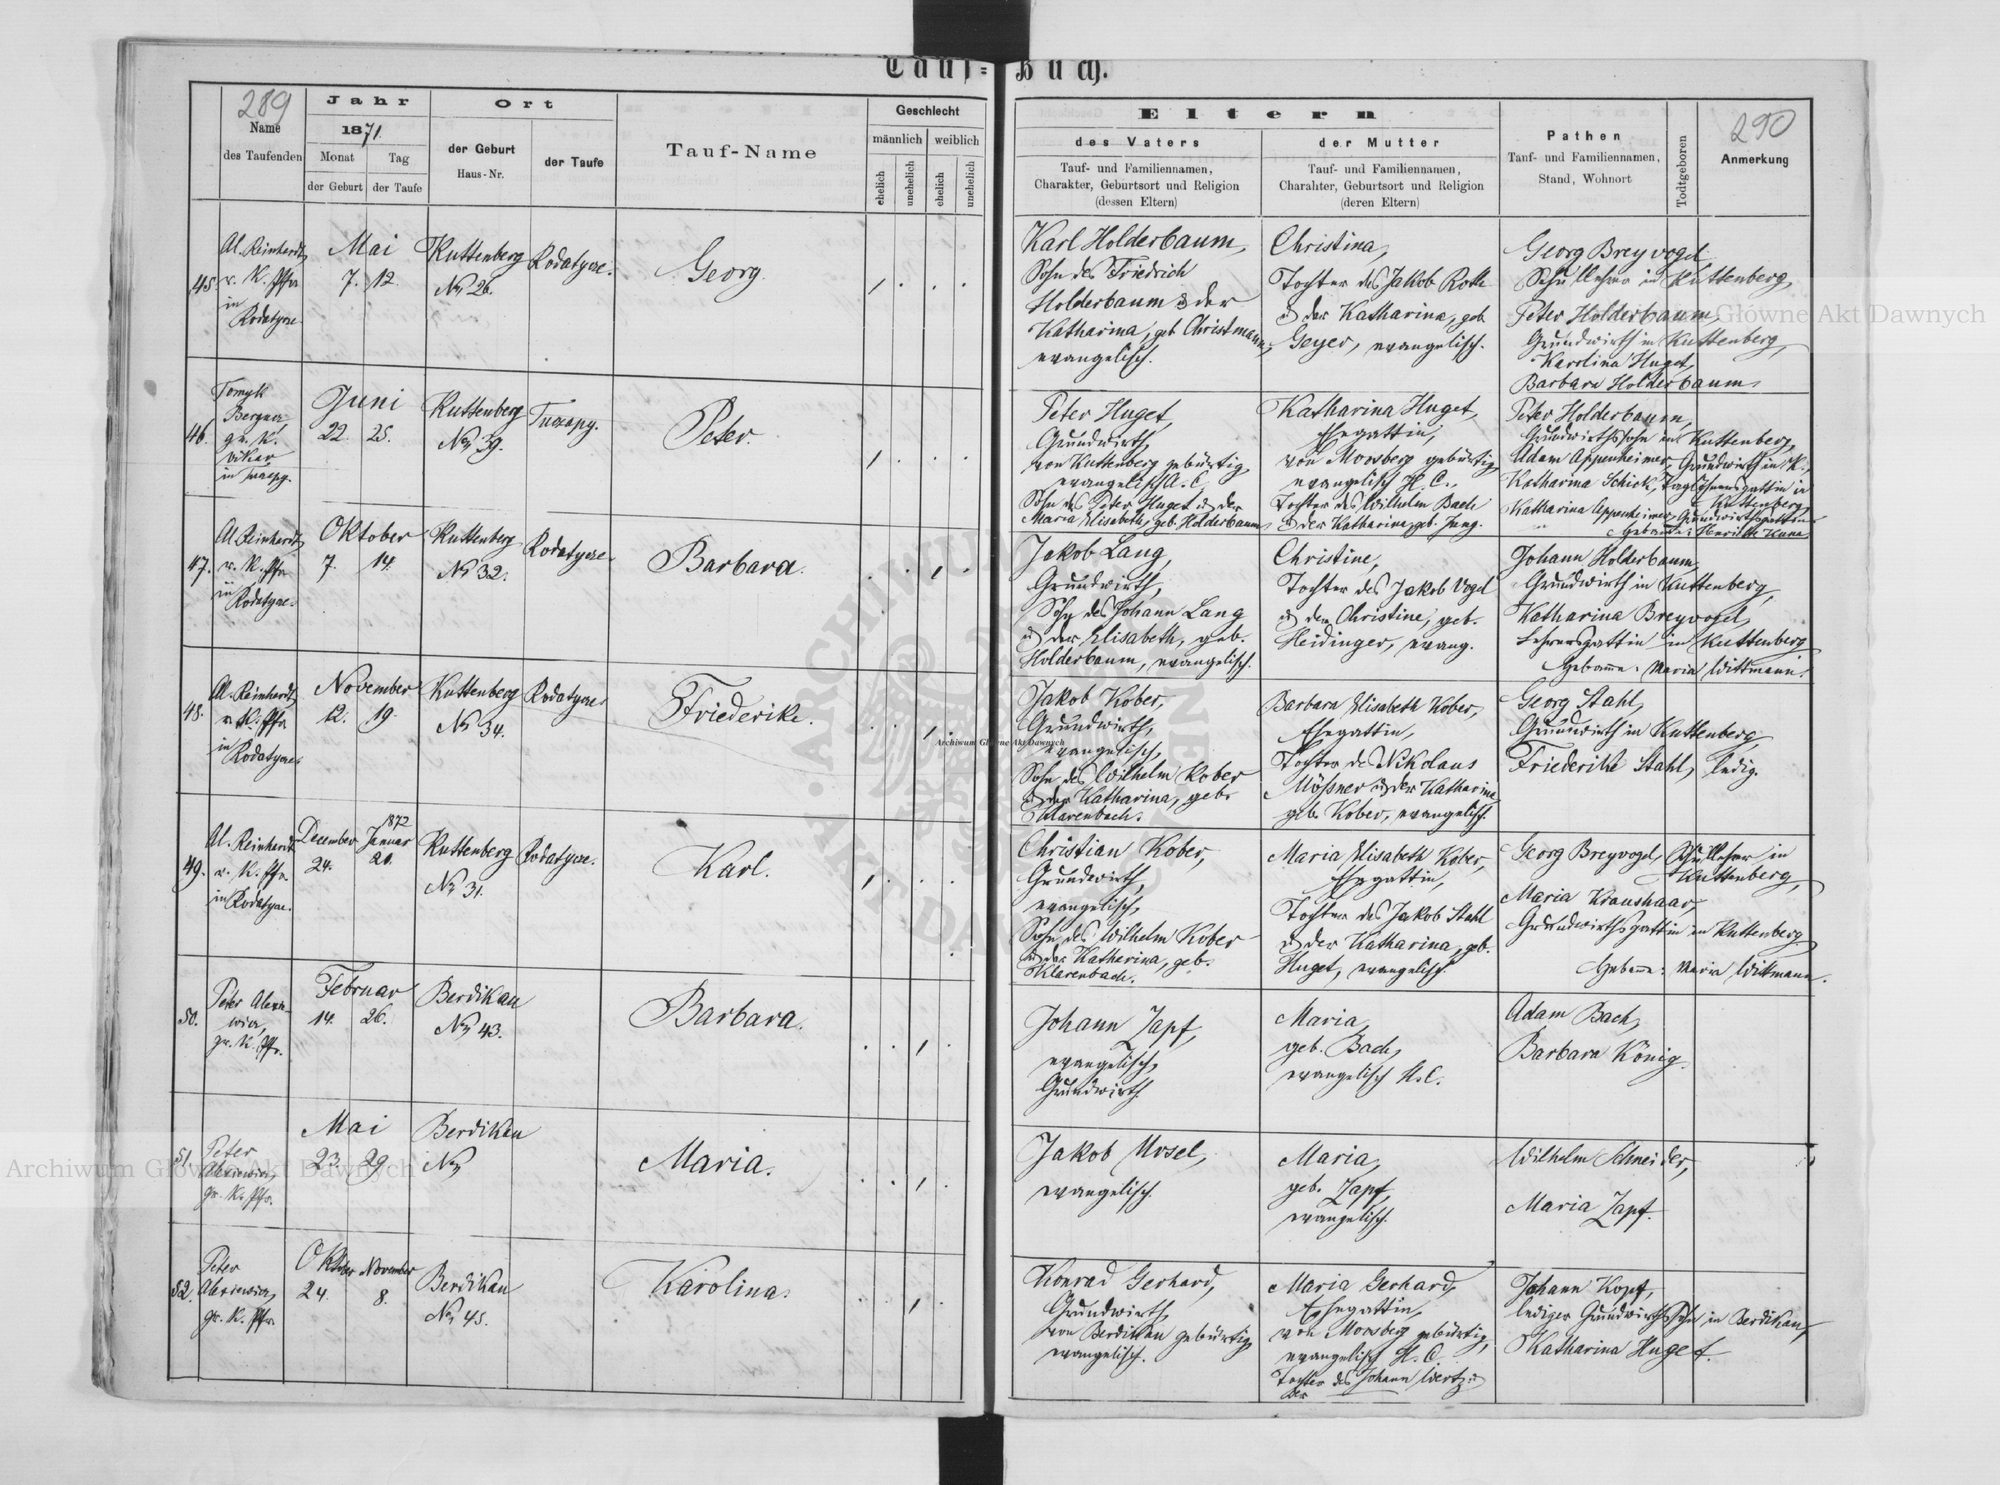 Tauf-Buch.
289
Name
des Taufenden
Jahr
1871.
Monat
Tag
der Geburt
der Taufe
Ort
der Geburt
Haus-Nr.
der Taufe
Tauf-Name
Geschlecht
männlich
weiblich
ehelich
unehelich
ehelich
unehelich
Eltern
des Vaters
Tauf- und Familiennamen,
Charakter, Geburtsort und Religion
(dessen Eltern)
der Mutter
Tauf- und Familiennamen,
Charakter, Geburtsort und Religion
(deren Eltern)
Pathen
Tauf- und Familiennamen,
Stand, Wohnort
Todtgeboren
290
Anmerkung
45.
Al. Reinhardt,
r. K. Pfr.
in
Rodatyce
Mai
7. 12.
Kuttenberg
No 26.
Rodatyce.
Georg.
Karl Holderbaum,
Sohn des Friedrich
Holderbaum u. der
Katharina, geb. Christmann,
evangelisch.
Christina,
Tochter des Jakob Roth
u. der Katharina, geb.
Geyer, evangelisch.
Georg Breyvogel
Schullehrer in Kuttenberg,
Peter Holderbaum,
Grundwirth in Kuttenberg,
Karolina Huget,
Barbara Holderbaum.
46.
gr. K.
Vikar
in
Juni
22. 25.
Kuttenberg
No 39.
Peter.
Peter Huget,
Grundwirth,
von Kuttenberg gebürtig,
evangelisch A. C.
Sohn des Peter Huget u. der
Maria Elisabeth, geb. Holderbaum
Katharina Huget,
Ehegattin,
von Moosberg gebürtig,
evangelisch H. C.,
Tochter des Wilhelm Bach
u. der Katharina, geb. Jung.
Peter Holderbaum,
Grundwirthssohn in Kuttenberg,
Adam Appenheimer, Grundwirth in K.,
Katharina Schick, Taglöhnersgattin in
Kuttenberg,
Katharina Appenheimer, Grundwirthsgattin
Gebamme:
47.
Al. Reinhardt,
r. K. Pfr.
in
Rodatyce.
Oktober
7. 14.
Kuttenberg
No 32.
Rodatyce.
Barbara.
Jakob Lang,
Grundwirth,
Sohn des Johann Lang
u. der Elisabeth, geb.
Holderbaum, evangelisch.
Christine,
Tochter des Jakob Vogel
u. der Christine, geb.
Heidinger, evang.
Johann Holderbaum,
Grundwirth in Kuttenberg,
Katharina Breyvogel,
Lehrersgattin in Kuttenberg
Gebamme: Maria Wittmann.
48.
Al. Reinhardt,
r. K. Pfr.
in
Rodatyce
November
12. 19.
Kuttenberg
No 34.
Rodatyce
Friederike.
Jakob Kober,
Grundwirth,
evangelisch,
Sohn des Wilhelm Kober
u. der Katharina, geb.
Klarenbach.
Barbara Elisabeth Kober,
Ehegattin,
Tochter des Nikolaus
Mößner u. der Katharina,
geb. Kober, evangelisch.
Georg Stahl,
Grundwirth in Kuttenberg,
Friederike Stahl, ledig.
49.
Al. Reinhardt
r. K. Pfr.
in Rodatyce.
December
24.
1872
Januar
21.
Kuttenberg
No 31.
Rodatyce.
Karl.
Christian Kober,
Grundwirth,
evangelisch,
Sohn des Wilhelm Kober
u. der Katharina, geb.
Klarenbach.
Maria Elisabeth Kober,
Ehegattin,
Tochter des Jakob Stahl
u. der Katharina, geb.
Huget, evangelisch.
Georg Breyvogel, Schullehrer in
Kuttenberg,
Maria Kraushaar,
Grundwirthsgattin in Kuttenberg
Gebamme: Maria Wittmann.
50.
Peter Alexie-
wicz,
gr. K. Pfr.
Februar
14. 26.
Berdikau
No 43.
Barbara.
Johann Zapf,
evangelisch,
Grundwirth.
Maria,
geb. Bach,
evangelisch H. C.
Adam Bach,
Barbara König.
51.
Peter
Alexiewicz,
gr. K. Pfr.
Mai
23. 29.
Berdikau
No
Maria.
Jakob Mosel,
evangelisch.
Maria,
geb. Zapf,
evangelisch.
Wilhelm Schneider,
Maria Zapf.
52.
Peter
Alexiewicz,
gr. K. Pfr.
Oktober
24.
November
8.
Berdikau
No 45.
Karolina.
Konrad Gerhard,
Grundwirth,
von Berdikau gebürtig,
evangelisch.
Maria Gerhard,
Ehegattin,
von Moosberg gebürtig,
evangelisch H. C.
Tochter des Johann Wertz u.
der
Johann Kopf,
lediger Grundwirthssohn in Berdikau,
Katharina Huget.
Archiwum Główne Akt Dawnych